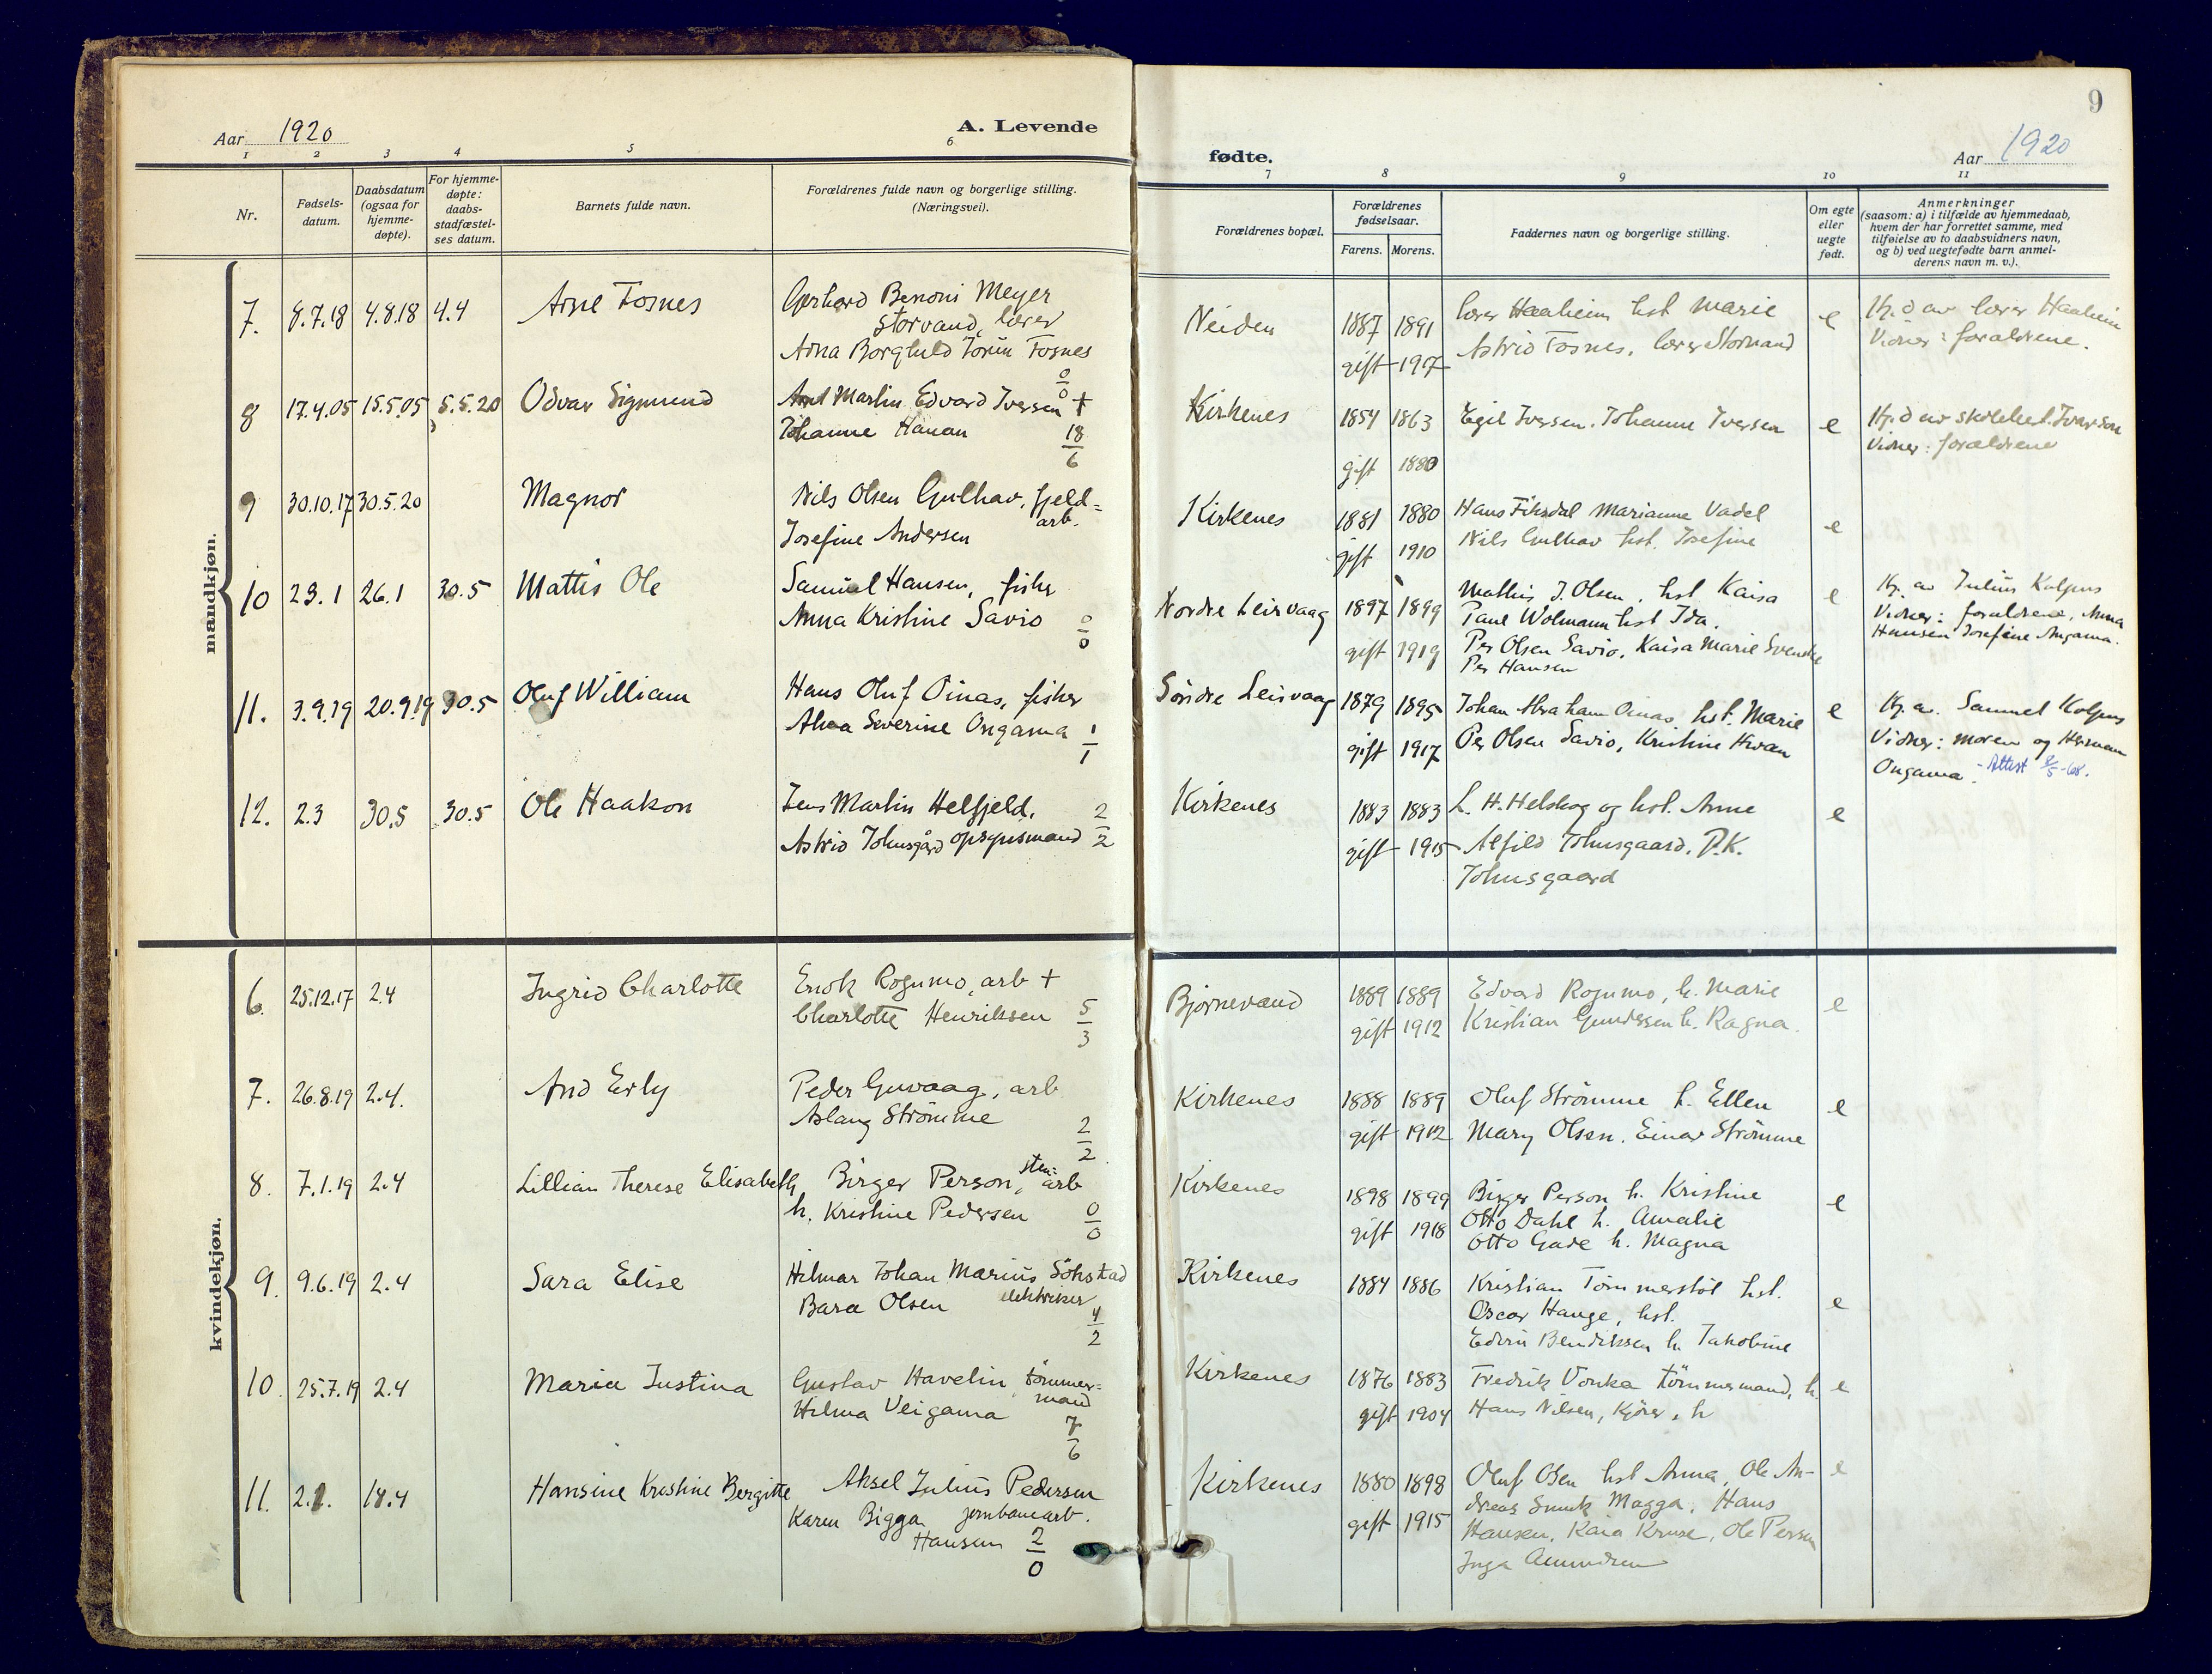 9
Aar 1920
A. Levende
fødte.
Aar 1920
1 2 3 4 5 6
7 8 9 10 11
Nr.
Fødsels-
datum.
Daabsdatum
(ogsaa for
hjemme-
døpte).
For hjemme-
døpte:
daabs-
stadfæstel-
ses datum.
Barnets fulde navn.
Forældrenes fulde navn og borgerlige stilling.
(Næringsvei).
Forældrenes bopæl.
Forældrenes
fødselsaar.
Farens. Morens.
Faddernes navn og borgerlige stilling.
Om egte
eller
uegte
født.
Anmerkninger
(saasom: a) i tilfælde av hjemmedaab,
hvem der har forrettet samme, med
tilføielse av to daabsvidners navn,
og b) ved uegtefødte barn anmel-
derens navn m. v.).
mandkjøn.
7. 8.7.18 4.8.18 4.4 Arne Fosnes
Gerhard Benoni Meyer
Storvand, lærer
Adna Borghild Jorun Fosnes
0
0
Neiden
1887 1891
gift 1917
lærer Haaheim hst Marie
Astrid Fosnes, lærer Storvand
e
Hj. d av lærer Haaheim
Vidner: forældrene.
8 17.4.05 15.5.05 5.5.20 Odvar Sigmund
Martin Edvard Iversen +
Johanne Hanan
18
6
Kirkenes
1854 1863
gift 1880
Egil Iversen. Johanne Iversen
e
Hj. d av Iversen
Vidner: forældrene
9 30.10.17 30.5.20 Magnor
Nils Olsen Gulhav, fjeld=
arb.
Josefine Andersen
Kirkenes
1881 1880
gift 1910
Hans Fiksdal Marianne Vadel
Nils Gulhav hst. Josefine
e
10 23.1 26.1 30.5 Mattis Ole
Samuel Hansen, fisker
Anna Kristine Savio
0
0
Nordre Leirvaag
1897 1899
gift 1919
Mathis J. Olsen, hst Kaisa
Paul Wolmann hst Ida.
Per Olsen Savio, Kaisa Marie Svendse
Per Hansen
e
Hj. av Julius Kalpus
Vidner: forældrene, Anna
Hansen Josefine Angama.
11. 3.9.19 20.9.19 30.5 Oluf William
Hans Oluf Oinas, fisker
Severine Ongama
1
1
Søndre Leirvaag
1879 1895
gift 1917
Johan Abraham Oinas, hst. Marie
Per Olsen Savio, Kristine
e
Hj. av. Samuel Kalpus
Vidner: moren og Herman
Ongama - Attest 8/5-68.
12. 2.3 30.5 30.5 Ole Haakon
Jens Martin Helfjeld,
Astrid Johnsgård opsynsmand
2
2
Kirkenes
1883 1883
gift 1915
L. H. Helskog og hst. Anne
Alfild Johnsgaard, P.K.
Johnsgaard
e
kvindekjøn.
6. 25.12.17 2.4 Ingrid Charlotte
Enok Rogumo, arb +
Charlotte Henriksen
5
3
Bjørnevand
1889 1889
gift 1912
Edvard Rogumo, h. Marie
Kristian Gundersen h. Ragna.
e
7. 26.8.19 2.4. Aud Erly
Peder Guvaag, arb
Aslaug Strømme
2
2
Kirkenes
1888 1889
gift 1912
Oluf Strømme h. Ellen
Mary Olsen. Einar Strømme
e
8. 7.1.19 2.4 Lillian Therese Elisabeth
Birger Person, sten=
arb
h. Kristine Pedersen
0
0
Kirkenes
1898 1899
gift 1918
Birger Person h. Kristine
Otto Dahl h. Amalie
Otto Gade h. Magna
e
9. 9.6.19 2.4 Sara Elise
Hilmar Johan Marius Søhstad
Bara Olsen elektriker
4
2
Kirkenes
1884 1886
Kristian Tømmerstøl hst.
Oscar Hauge, hst.
Edvin Bendiksen h. Jakobine
e
10. 25.7.19 2.4 Maria Justina
Gustav Havelin tømmer=
mand
Hilma Veigama
7
6
Kirkenes
1876 1883
gift 1904
Fredrik Vonka tømmermand, h.
Hans Nilsen, kjører, h
e
11. 2.1. 18.4 Hansine Kristine Bergitte
Aksel Julius Pedersen
Karen Bigga jernbanearb.
Hansen
2
0
Kirkenes
1880 1898
gift 1915
Oluf Olsen hst Anna, Ole An-
dreas Smuk Magga, Hans
Hansen, Kaia Kruse, Ole Persen
Inga Amundsen
e